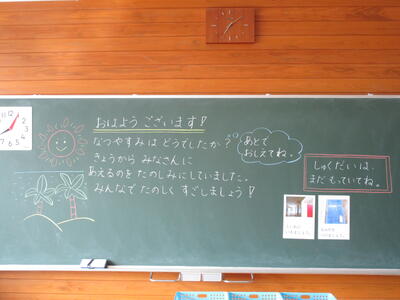 おはよう ございます！
なつやすみは どうでしたか？
きょうから みなさんに
あえるのを たのしみにしていました。
みんなで たのしく すごしましょう！
あとで
おしえてね。
しゅくだいは、
まだ もっていてね。